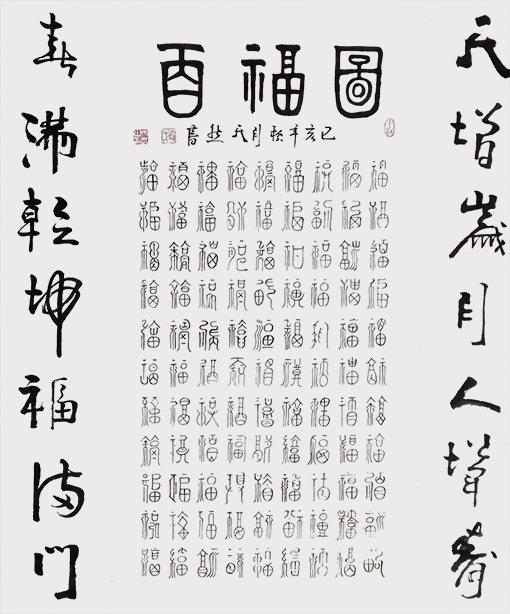 百福圖
己亥年秋月天然書
天增歲月人增壽
春滿乾坤福滿門
福福福福福福福福福
福福福福福福福福福
福福福福福福福福福
福福福福福福福福福
福福福福福福福福福
福福福福福福福福福
福福福福福福福福福
福福福福福福福福福
福福福福福福福福福
福福福福福福福福福
福福福福福福福福福